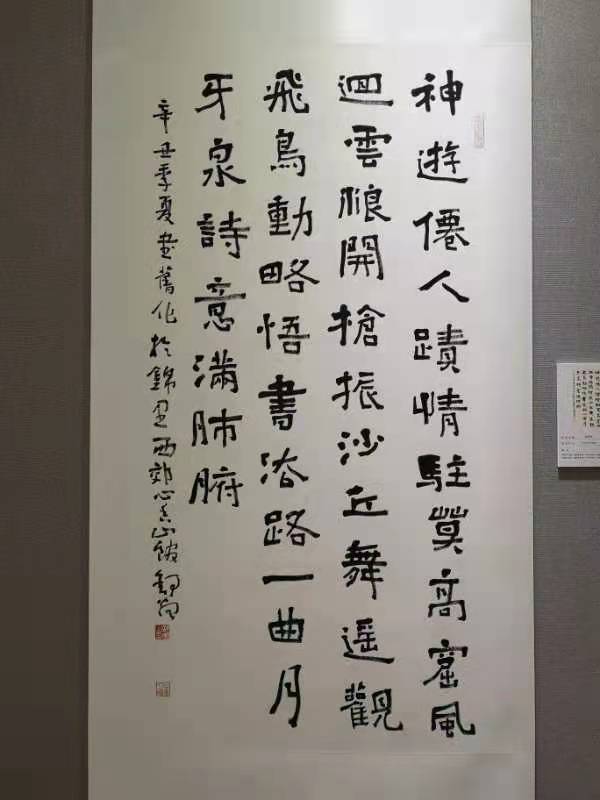 神遊僊人蹟情駐莫高窟風
迴雲脹開搶振沙丘舞遥觀
飛鳥動略悟書法路一曲月
牙泉詩意滿肺腑
辛丑季夏書舊作於錦里西郊心香山館